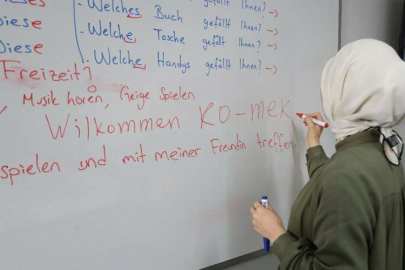 diese · Welches Buch gefällt Ihnen? →
Diese · Welche Tasche gefällt Ihnen? →
Diese · Welche Handys gefällt Ihnen? →
Freizeit?
✓ Musik hören, Geige Spielen
Wilkommen KO-MEK
spielen und mit meiner Freundin treffen